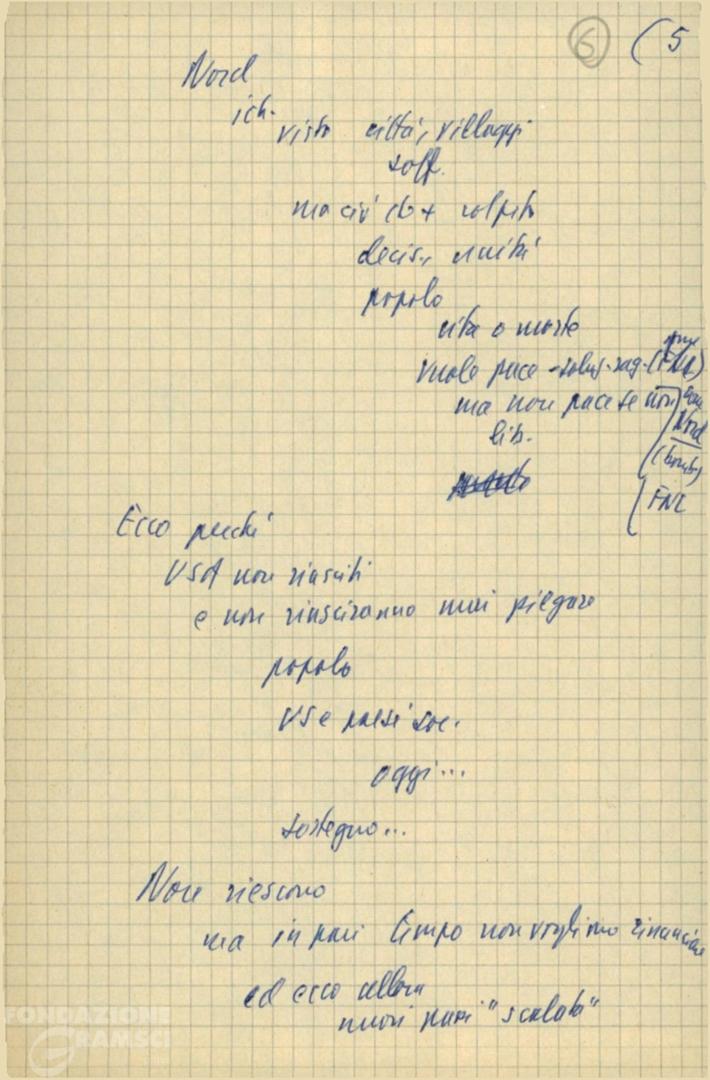 6 ( 5
Nord
ich.
visto città, villaggi
soff.
ma ciò ch + colpito
decis., unità
popolo
vita o morte
vuole pace - solus. rag. (FNL)
ma non pace se non
lib.
Nord
(bomb)
FNL
Ecco perché
USA non riusciti
e non riusciranno mai piegare
popolo
US e paesi soc.
oggi...
sostegno...
Non riescono
ma in pari tempo non vogliono rinunciare
ed ecco allora
nuovi passi "scalata"
FONDAZIONE
GRAMSCI